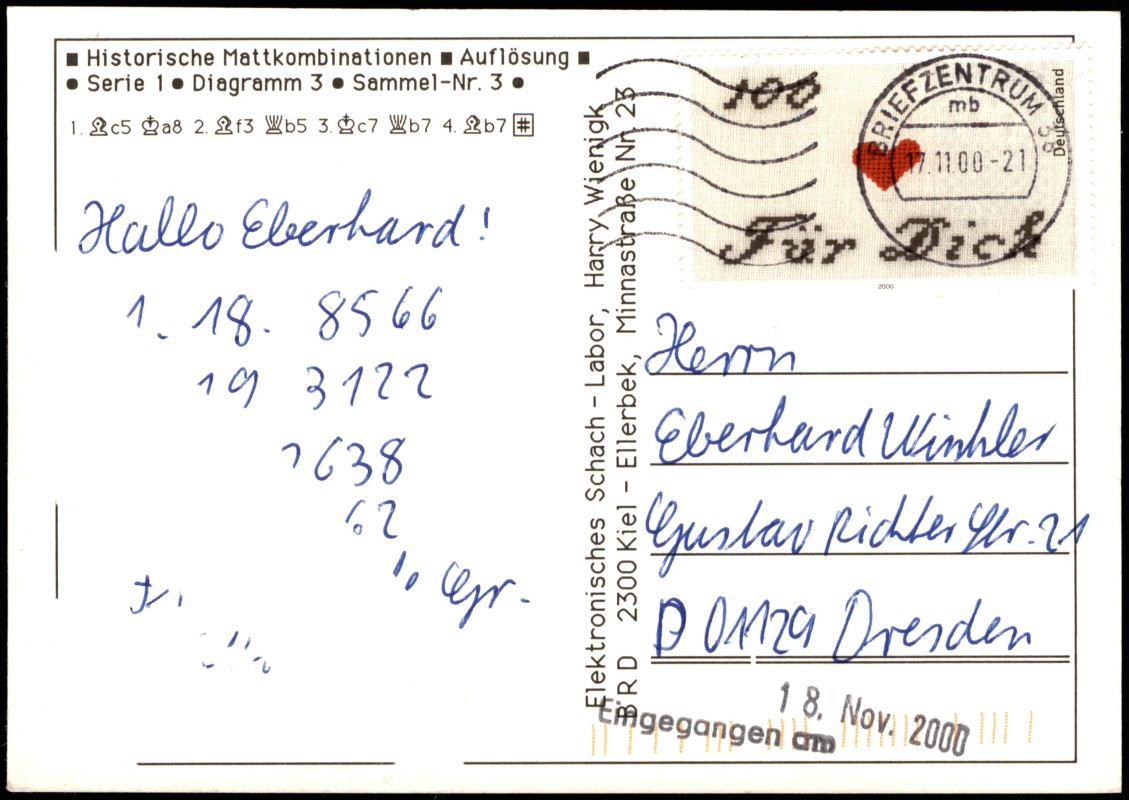 ■ Historische Mattkombinationen ■ Auflösung ■
● Serie 1 ● Diagramm 3 ● Sammel-Nr. 3 ●
1. ♗c5 ♔a8 2. ♗f3 ♕b5 3. ♔c7 ♕b7 4. ♗b7 #
Hallo Eberhard!
1. 18. 8566
19 3122
1638
62
Gr.
Elektronisches Schach-Labor, Harry Wienigk
BRD 2300 Kiel - Ellerbek, Minnastraße Nr. 23
100
Deutschland
Für Dich
2000
BRIEFZENTRUM
mb
17.11.00-21
Herrn
Eberhard Winkler
Gustav Richter Str. 21
D 01129 Dresden
Eingegangen am 18. Nov. 2000